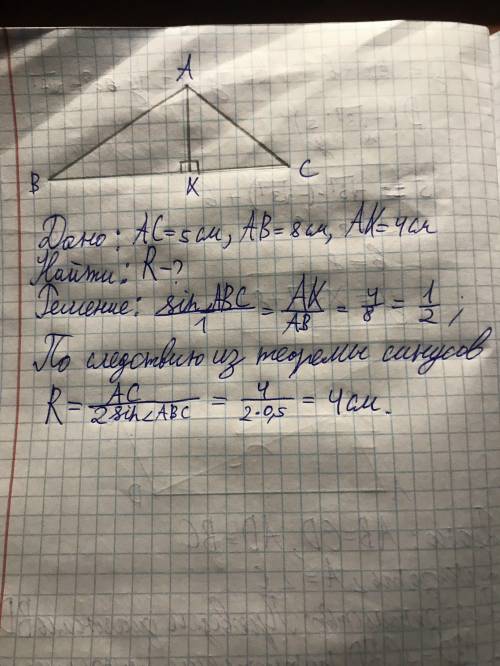 A
B
K
C
Дано: AC=5см, AB=8см, AK=4см
Найти: R-?
Решение: sin∠ABC/1 = AK/AB = 4/8 = 1/2;
По следствию из теоремы синусов
R = AC/2sin∠ABC = 4/2·0,5 = 4см.